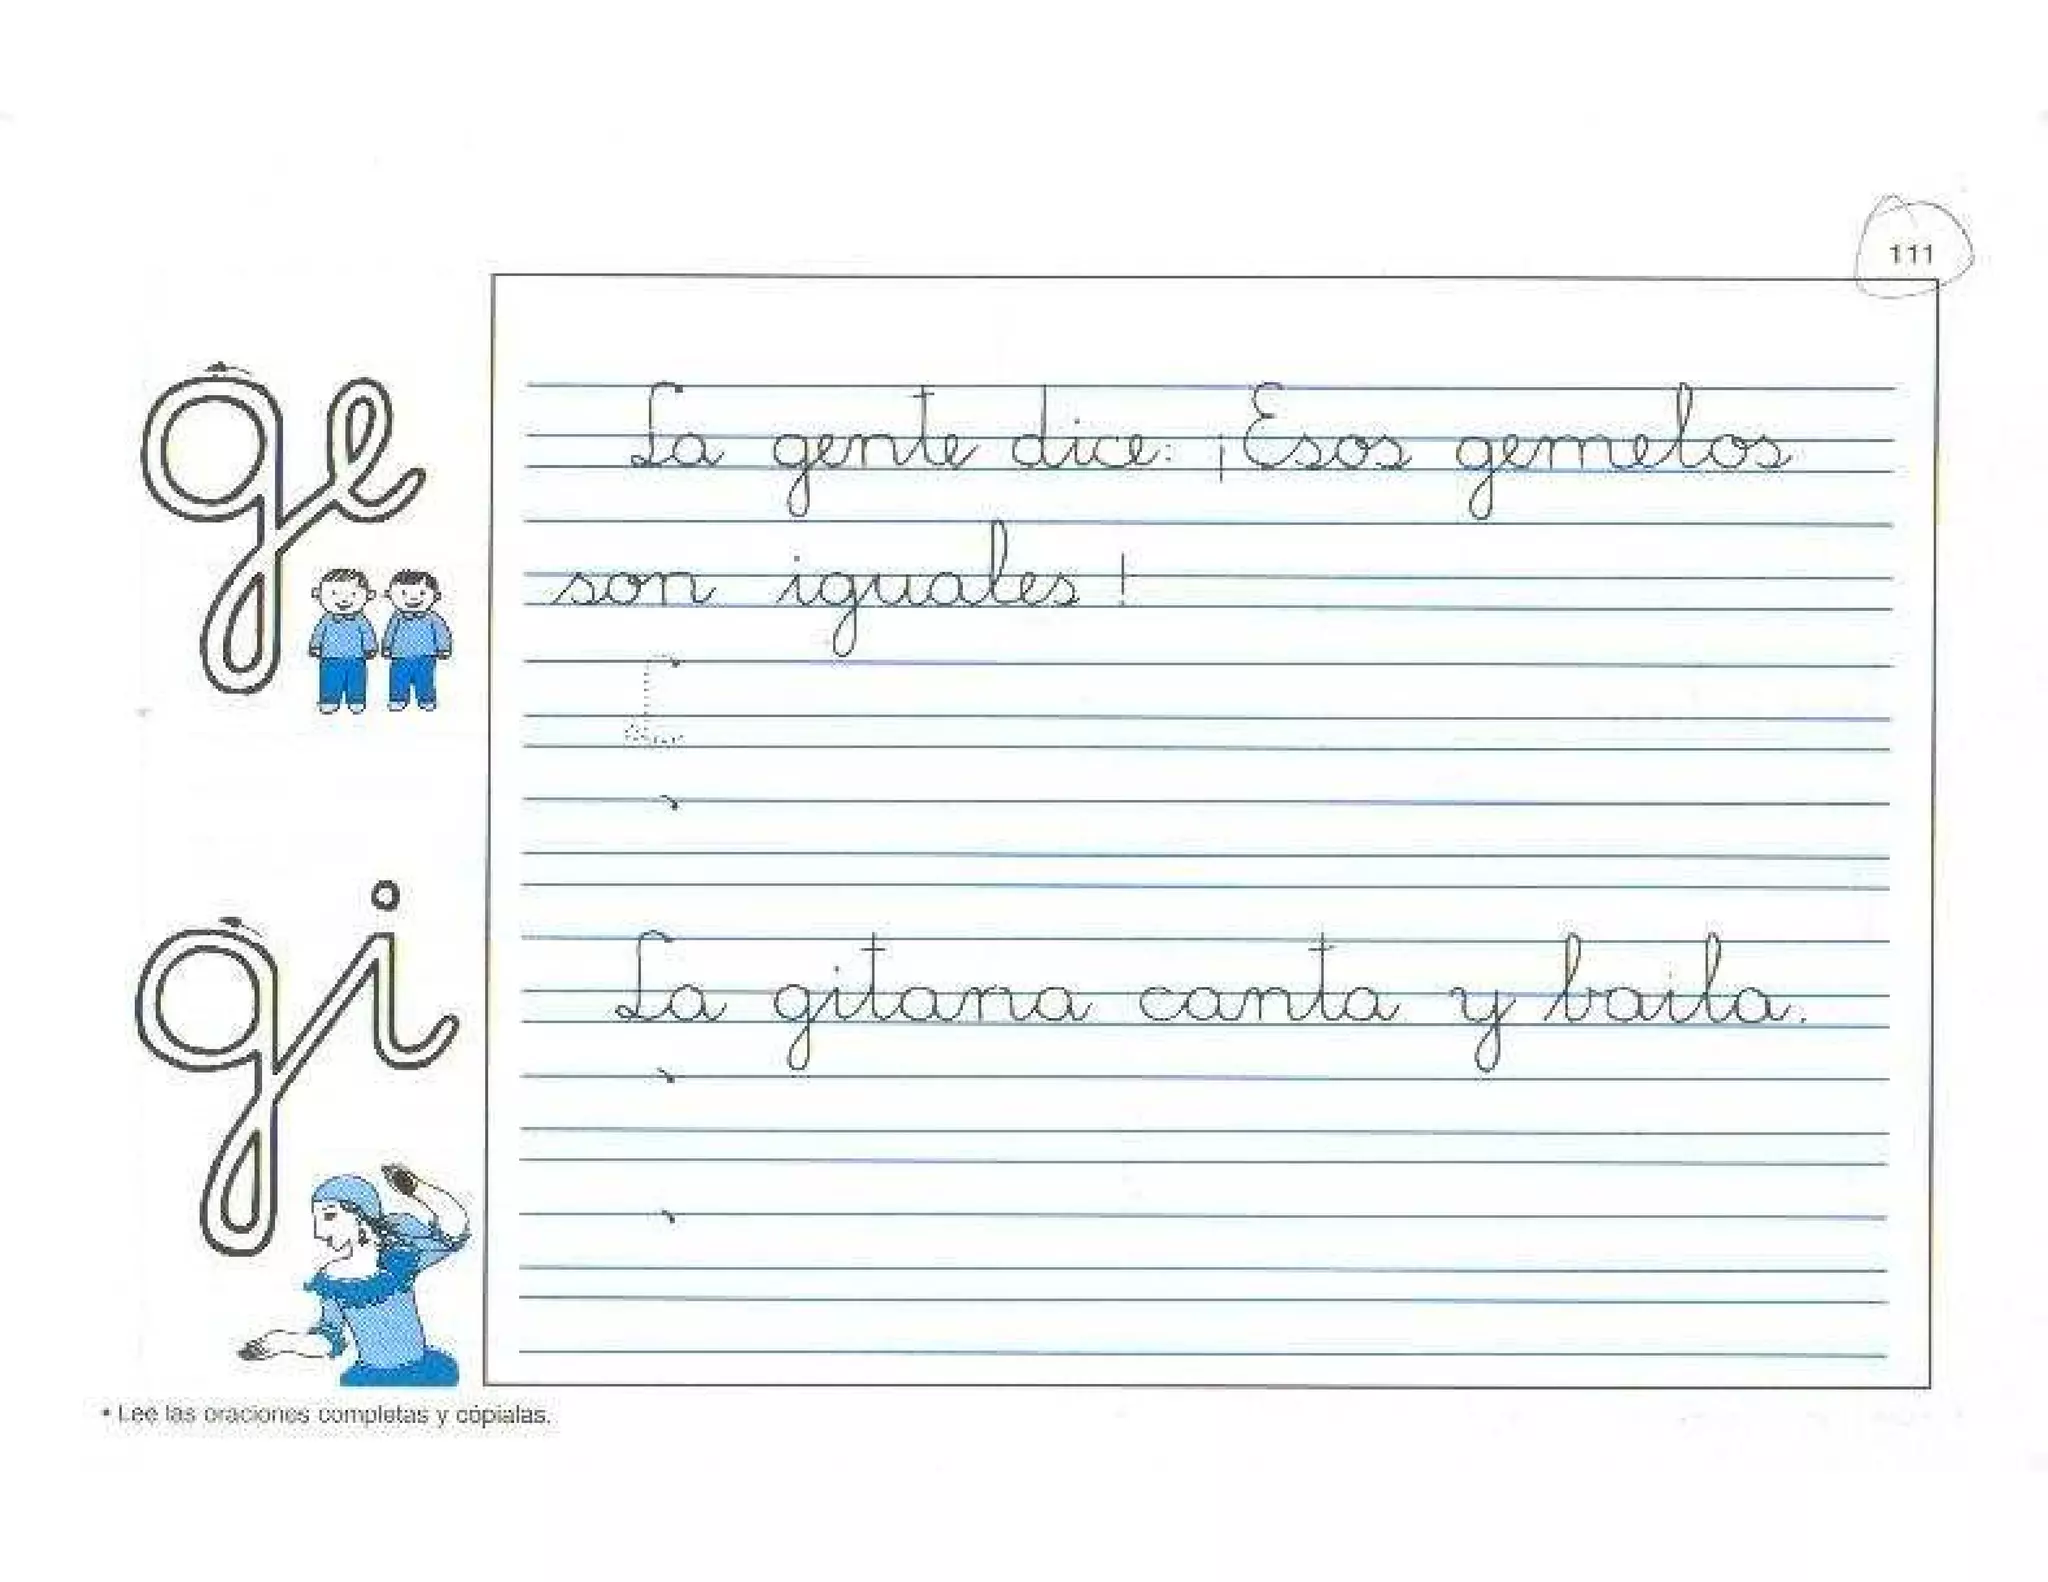 111
ge
La gente dice: ¡Esos gemelos
son iguales!
gi
La gitana canta y baila.
• Lee las oraciones completas y cópialas.